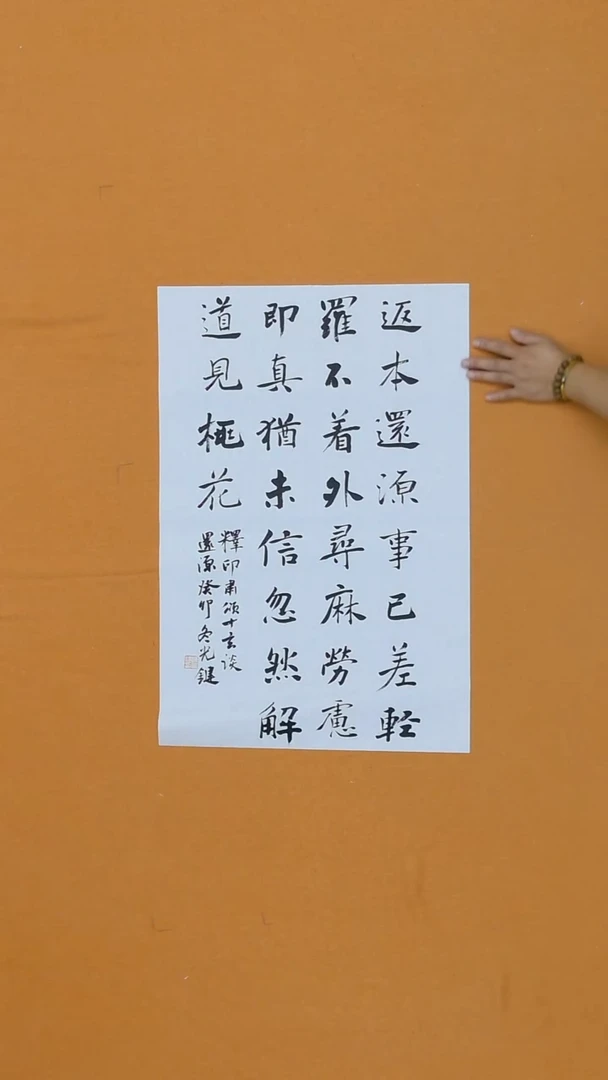 返本還源事已差輕
羅不着外尋麻勞慮
即真猶未信忽然解
道見桃花
釋印肅頌十玄談
還源癸卯冬光鍵